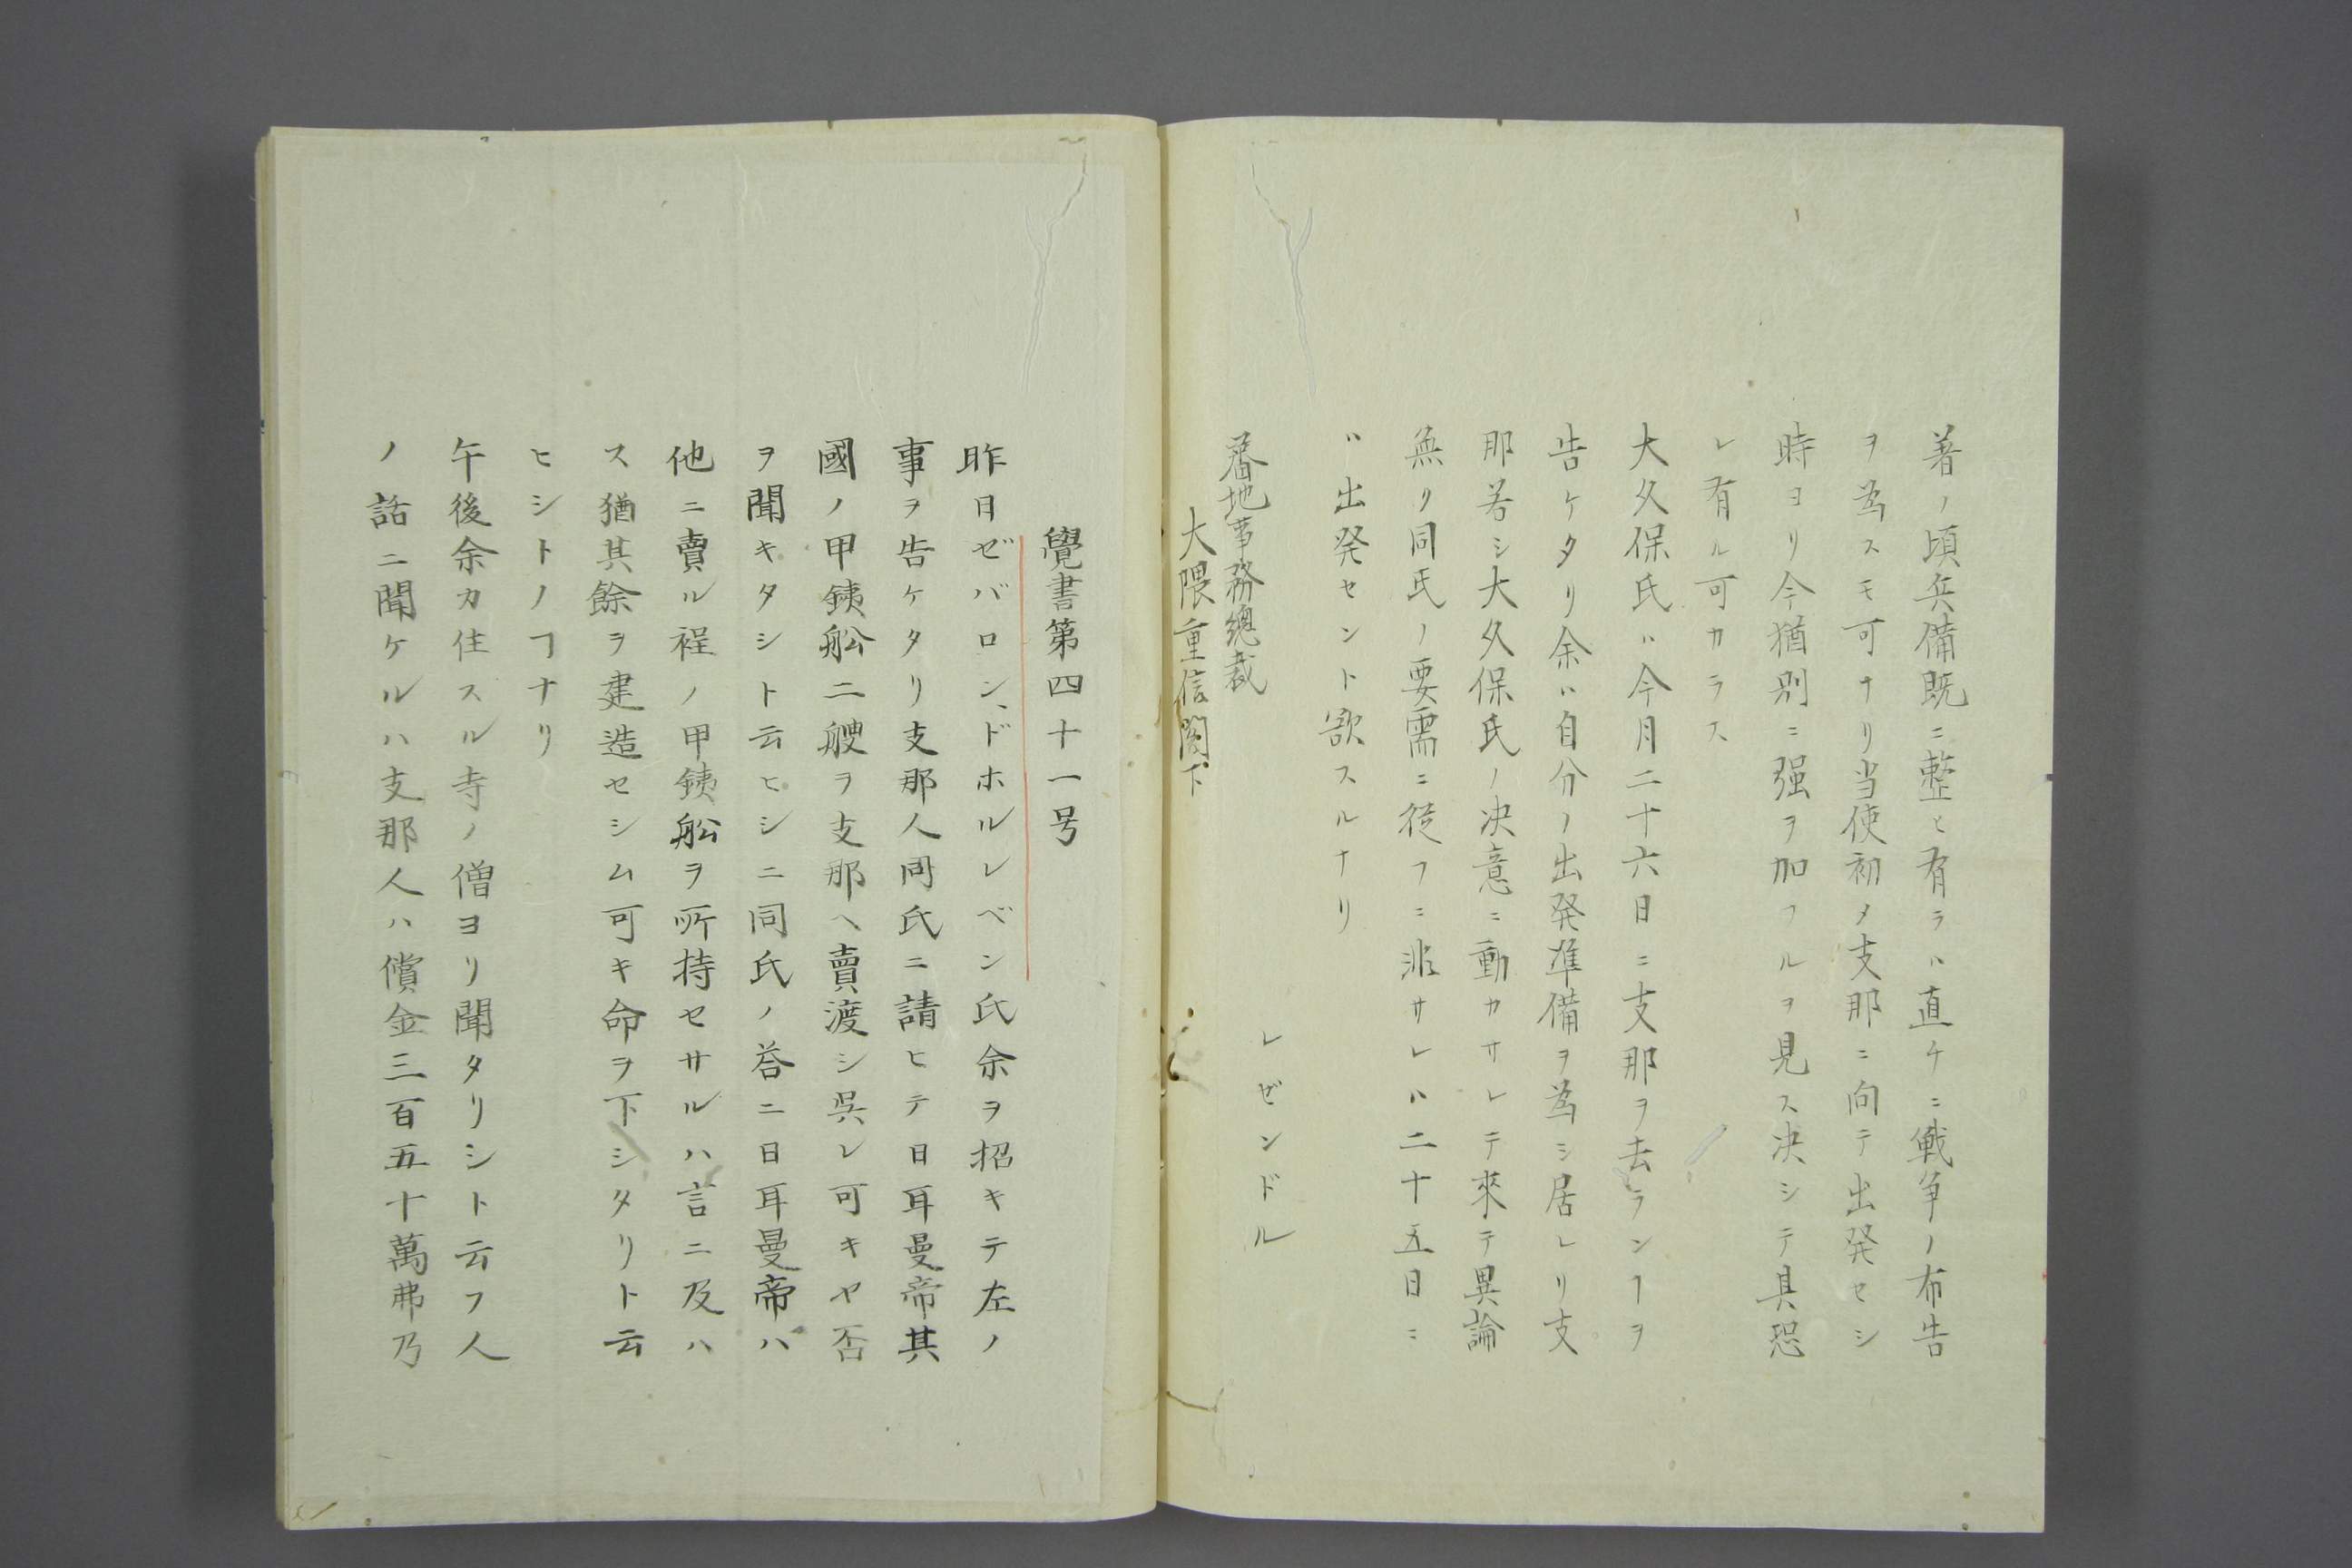 著ノ頃兵備既ニ整ヒ有ラハ直チニ戦争ノ布告
ヲ為スモ可ナリ当使初メ支那ニ向テ出発セシ
時ヨリ今猶別ニ强ヲ加フルヲ見ス决シテ具恐
レ有ル可カラス
大久保氏ハ今月二十六日ニ支那ヲ去ランヿヲ
告ケタリ余ハ自分ノ出発準備ヲ為シ居レリ支
那若シ大久保氏ノ决意ニ動カサレテ來テ異論
無ク同氏ノ要需ニ従フニ非サレハ二十五日ニ
ハ出発セント欲スルナリ
レゼンドル
蕃地事務總裁
大隈重信閣下
覺書第四十一号
昨日ゼバロン、ドホルレベン氏余ヲ招キテ左ノ
事ヲ告ケタリ支那人同氏ニ請ヒテ日耳曼帝其
國ノ甲銕舩二艘ヲ支那ヘ賣渡シ呉レ可キヤ否
ヲ聞キタシト云ヒシニ同氏ノ答ニ日耳曼帝ハ
他ニ賣ル程ノ甲銕舩ヲ所持セサルハ言ニ及ハ
ス猶其餘ヲ建造セシム可キ命ヲ下シタリト云
ヒシトノヿナリ
午後余カ住スル寺ノ僧ヨリ聞タリシト云フ人
ノ話ニ聞ケルハ支那人ハ償金三百五十萬弗乃